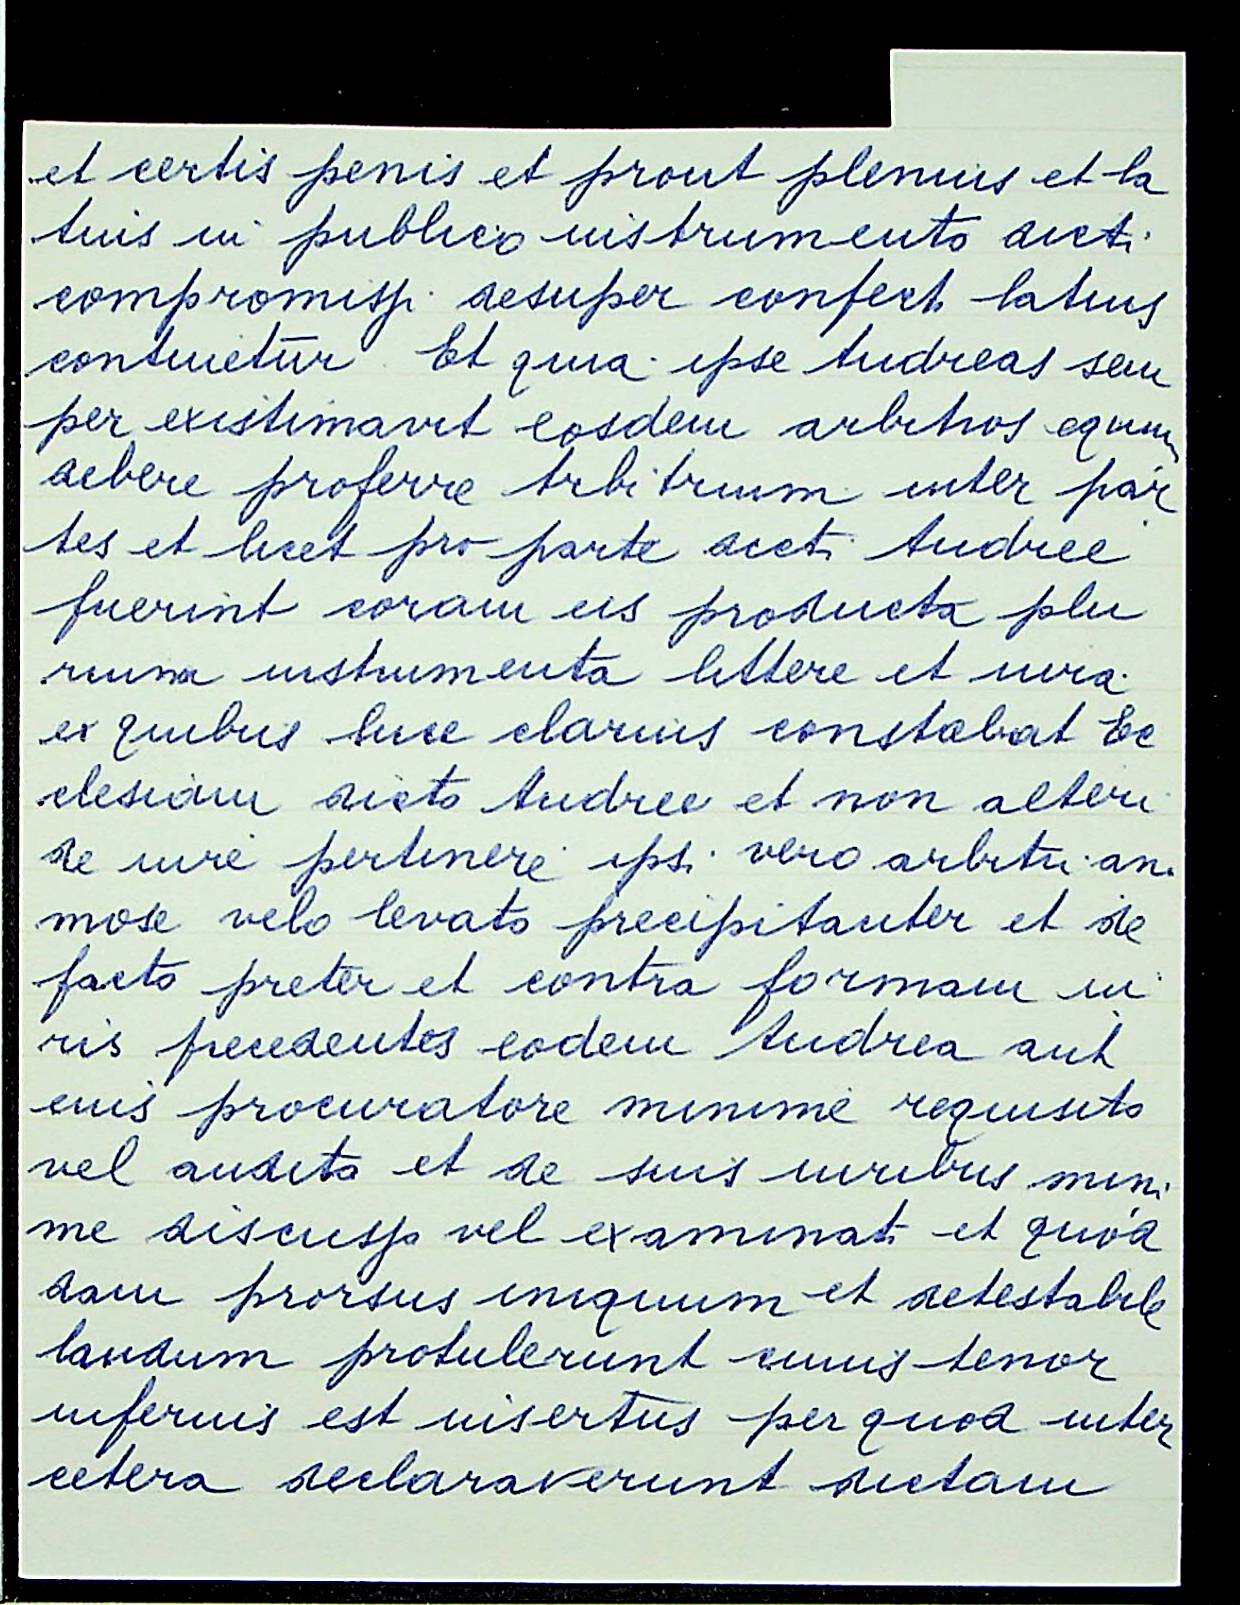 et certis penis et prout plenius et la
tius in publico instrumento dicti
compromissi desuper confecti latius
continetur Et quia ipse Andreas sem
per existimavit eosdem arbitros equum
debere proferre Arbitrium inter par
tes et licet pro parte dicti Andree
fuerint coram eis producta plu
rima instrumenta littere et iura
ex quibus luce clarius constabat Ec
clesiam dicto Andree et non alteri
de iure pertinere ipsi vero arbitri ani
mose velo levato precipitanter et de
facto preter et contra formam iu
ris procedentes eodem Andrea aut
eius procuratore minime requisito
vel audito et de suis iuribus mini
me discusso vel examinati et quod
dam prorsus iniquum et detestabile
laudum protulerunt cuius tenor
inferius est insertus per quod inter
cetera declaraverunt dictam